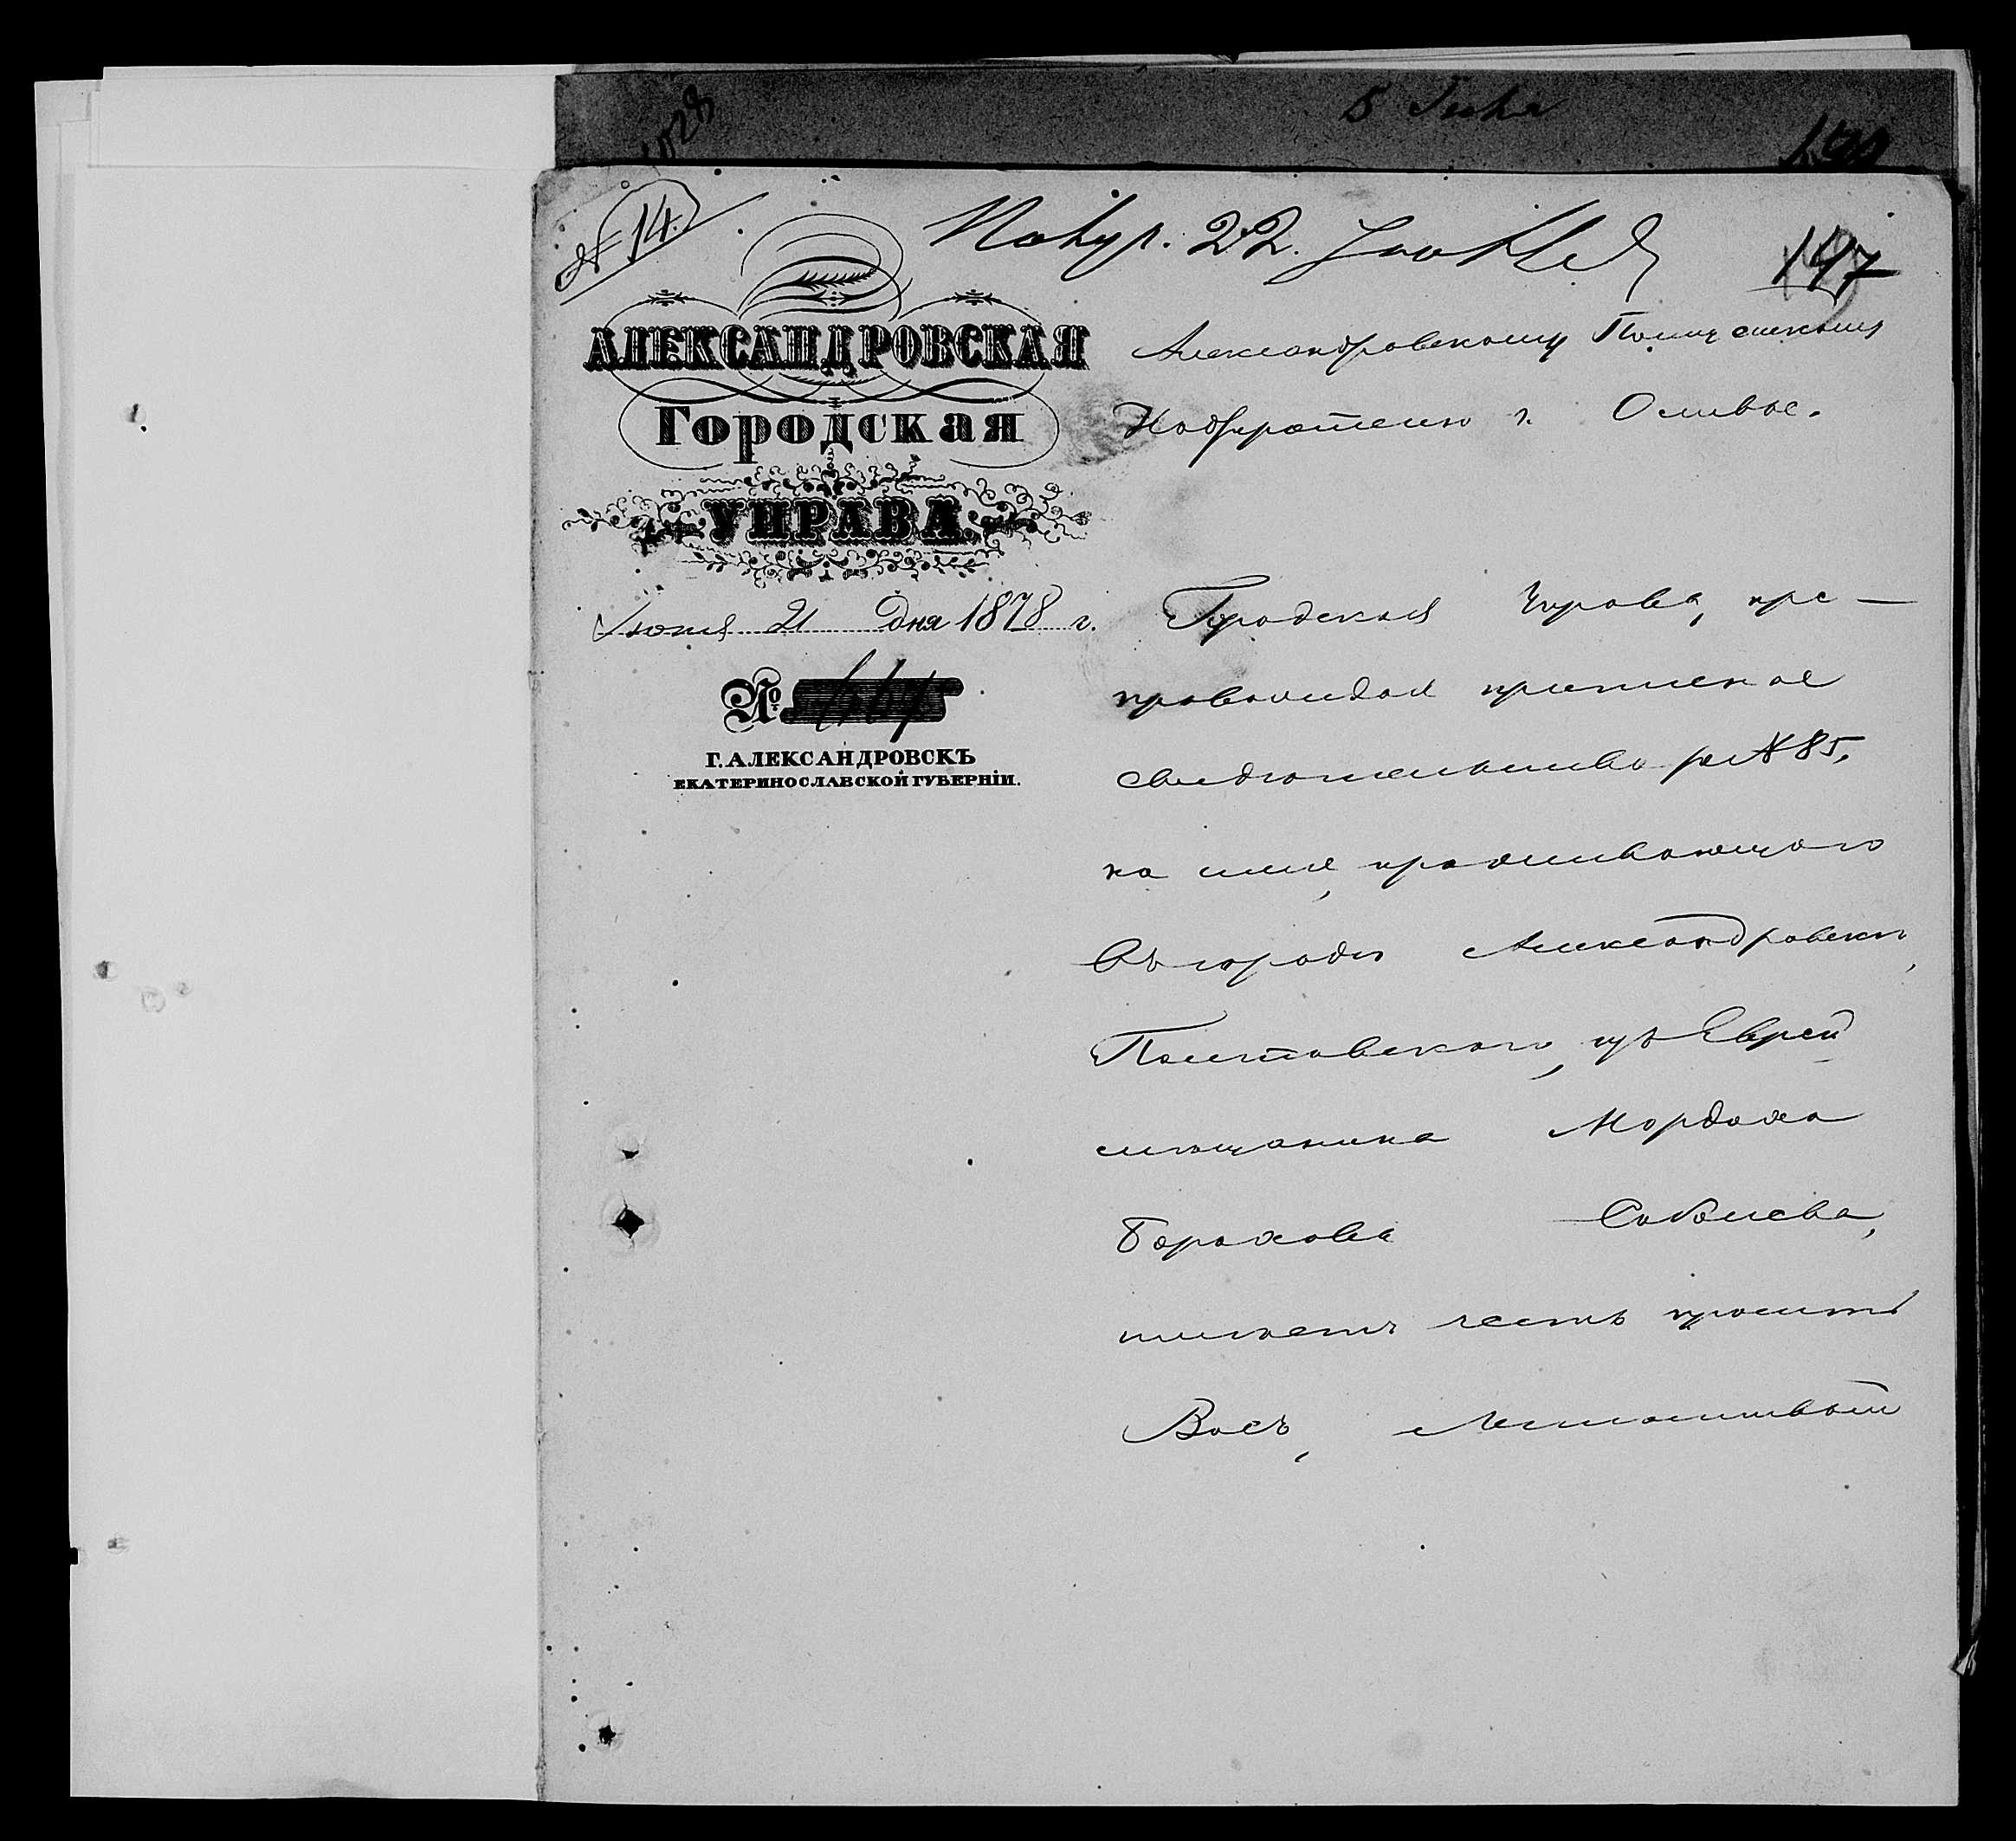 1028
5 Июля
190
№ 14.
Получ. 22 Июня
147
АЛЕКСАНДРОВСКАЯ
Городская
УПРАВА.
Июня 21 Дня 1878 г.
№
Г. АЛЕКСАНДРОВСКЪ
ЕКАТЕРИНОСЛАВСКОЙ ГУБЕРНІИ.
Александровскому Полицейскому
Надзирателю г.
Городская Управа, пре-
провождая приписное
свидетельство за № 85,
на имя, проживающаго
въ городѣ Александровскѣ,
Полтавскаго, изъ Еврей
мѣщанина Мордаха
Борохова Соболева,
имѣетъ честь просить
Васъ, Милостивый